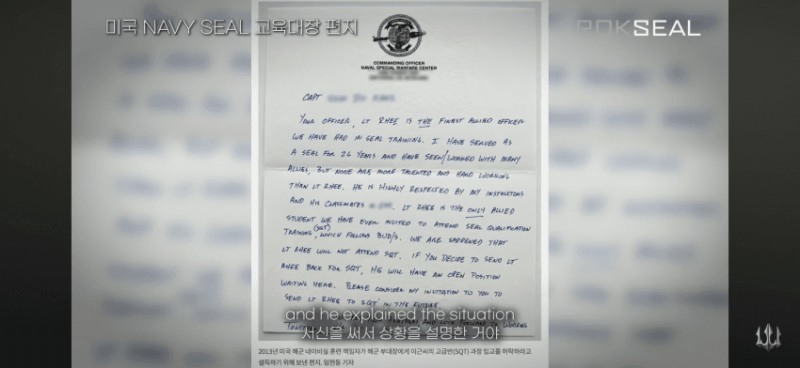 미국 NAVY SEAL 교육대장 편지
ROKSEAL
COMMANDING OFFICER
NAVAL SPECIAL WARFARE CENTER
CAPT
YOUR OFFICER, LT RHEE IS THE FINEST ALLIED OFFICER
WE HAVE HAD IN SEAL TRAINING. I HAVE SERVED AS
A SEAL FOR 26 YEARS AND HAVE SEEN/WORKED WITH MANY
ALLIES, BUT NONE ARE MORE TALENTED AND HARD WORKING
THAN LT RHEE. HE IS HIGHLY RESPECTED BY MY INSTRUCTORS
AND HIS CLASSMATES. LT RHEE IS THE ONLY ALLIED
STUDENT WE HAVE EVER INVITED TO ATTEND SEAL QUALIFICATION
TRAINING (SQT), WHICH FOLLOWS BUD/S. WE ARE SADDENED THAT
LT RHEE WILL NOT ATTEND SQT. IF YOU DECIDE TO SEND LT
RHEE BACK FOR SQT, HE WILL HAVE AN OPEN POSITION
WAITING HERE. PLEASE CONSIDER MY INVITATION TO YOU TO
SEND LT RHEE TO SQT IN THE FUTURE.
and he explained the situation
서신을 써서 상황을 설명한 거야
2013년 미국 해군 네이비실 훈련 책임자가 해군 부대장에게 이근씨의 고급반(SQT) 과정 입교를 허락하라고
설득하기 위해 보낸 편지. 임현동 기자